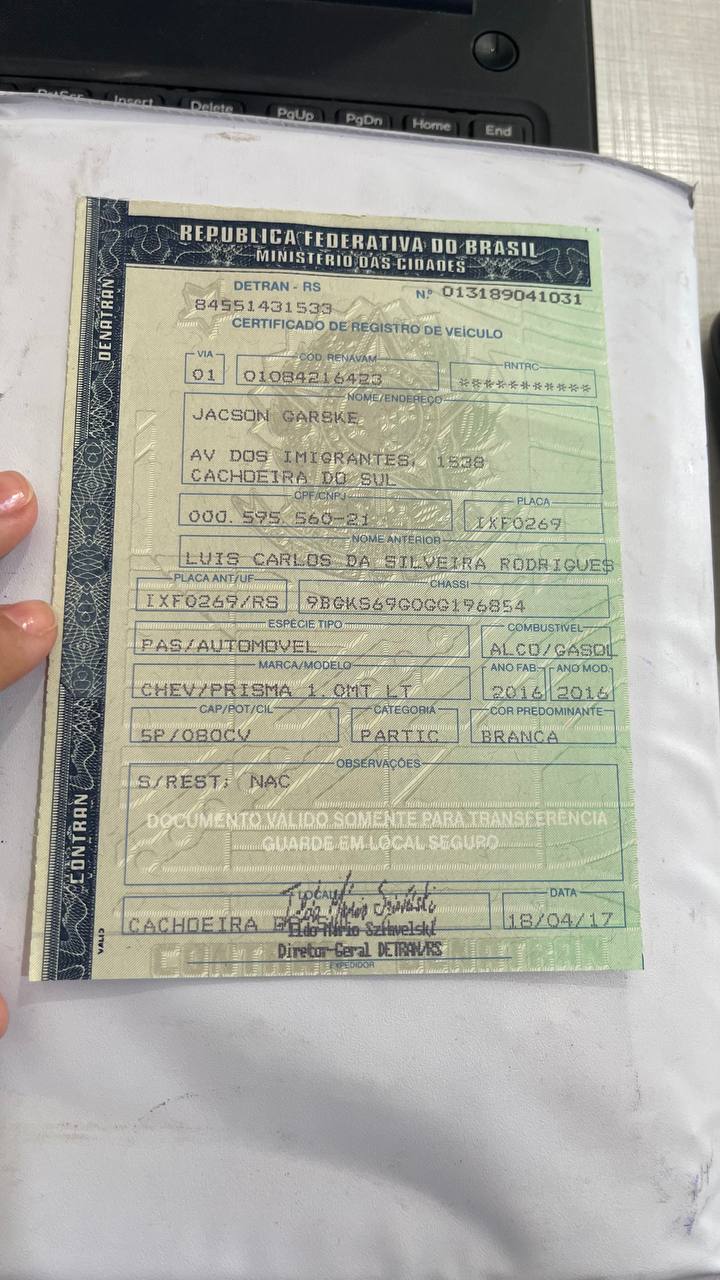 PrtScr Insert Delete PgUp PgDn Home End
REPUBLICA FEDERATIVA DO BRASIL
MINISTÉRIO DAS CIDADES
DENATRAN
DETRAN - RS
Nº 013189041031
84551431533
CERTIFICADO DE REGISTRO DE VEÍCULO
VIA CÓD. RENAVAM RNTRC
01 01084216423 ***********
NOME/ENDEREÇO
JACSON GARSKE
AV DOS IMIGRANTES, 1538
CACHOEIRA DO SUL
CPF/CNPJ PLACA
000.595.560-21 IXF0269
NOME ANTERIOR
LUIS CARLOS DA SILVEIRA RODRIGUES
PLACA ANT/UF CHASSI
IXF0269/RS 9BGKS69G0GG196854
ESPÉCIE TIPO COMBUSTÍVEL
PAS/AUTOMOVEL ALCO/GASOL
MARCA/MODELO ANO FAB. ANO MOD.
CHEV/PRISMA 1.0MT LT 2016 2016
CAP/POT/CIL CATEGORIA COR PREDOMINANTE
5P/080CV PARTIC BRANCA
OBSERVAÇÕES
S/REST; NAC
DOCUMENTO VÁLIDO SOMENTE PARA TRANSFERÊNCIA
GUARDE EM LOCAL SEGURO
CONTRAN
LOCAL DATA
CACHOEIRA 18/04/17
Diretor-Geral DETRAN/RS
EXPEDIDOR
CONTRAN DENATRAN